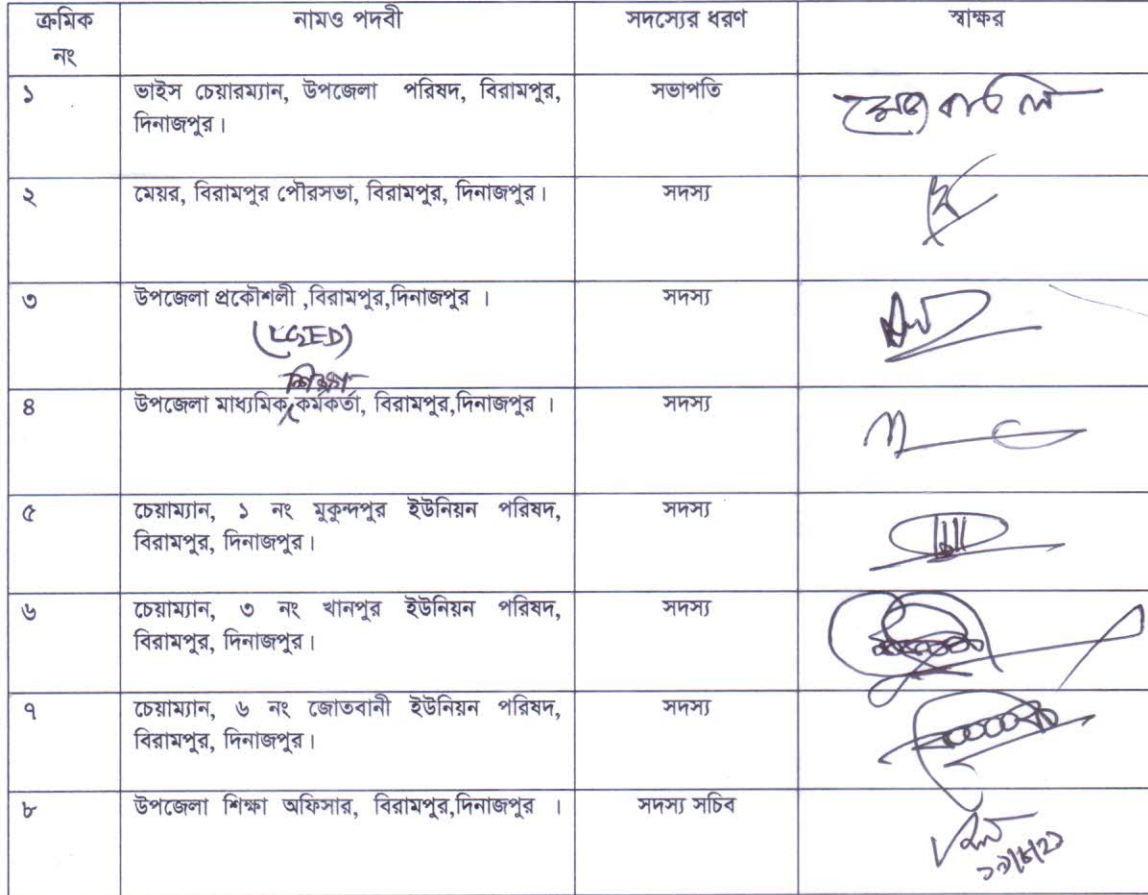 ক্রমিক নং	নামও পদবী	সদস্যের ধরণ	স্বাক্ষর
১	ভাইস চেয়ারম্যান, উপজেলা পরিষদ, বিরামপুর,	সভাপতি
দিনাজপুর।
২	মেয়র, বিরামপুর পৌরসভা, বিরামপুর, দিনাজপুর।	সদস্য
৩	উপজেলা প্রকৌশলী ,বিরামপুর,দিনাজপুর ।	সদস্য
(LGED)
শিক্ষা
৪	উপজেলা মাধ্যমিক কর্মকর্তা, বিরামপুর,দিনাজপুর ।	সদস্য
৫	চেয়াম্যান, ১ নং মুকুন্দপুর ইউনিয়ন পরিষদ,	সদস্য
বিরামপুর, দিনাজপুর।
৬	চেয়াম্যান, ৩ নং খানপুর ইউনিয়ন পরিষদ,	সদস্য
বিরামপুর, দিনাজপুর।
৭	চেয়াম্যান, ৬ নং জোতবানী ইউনিয়ন পরিষদ,	সদস্য
বিরামপুর, দিনাজপুর।
৮	উপজেলা শিক্ষা অফিসার, বিরামপুর,দিনাজপুর ।	সদস্য সচিব